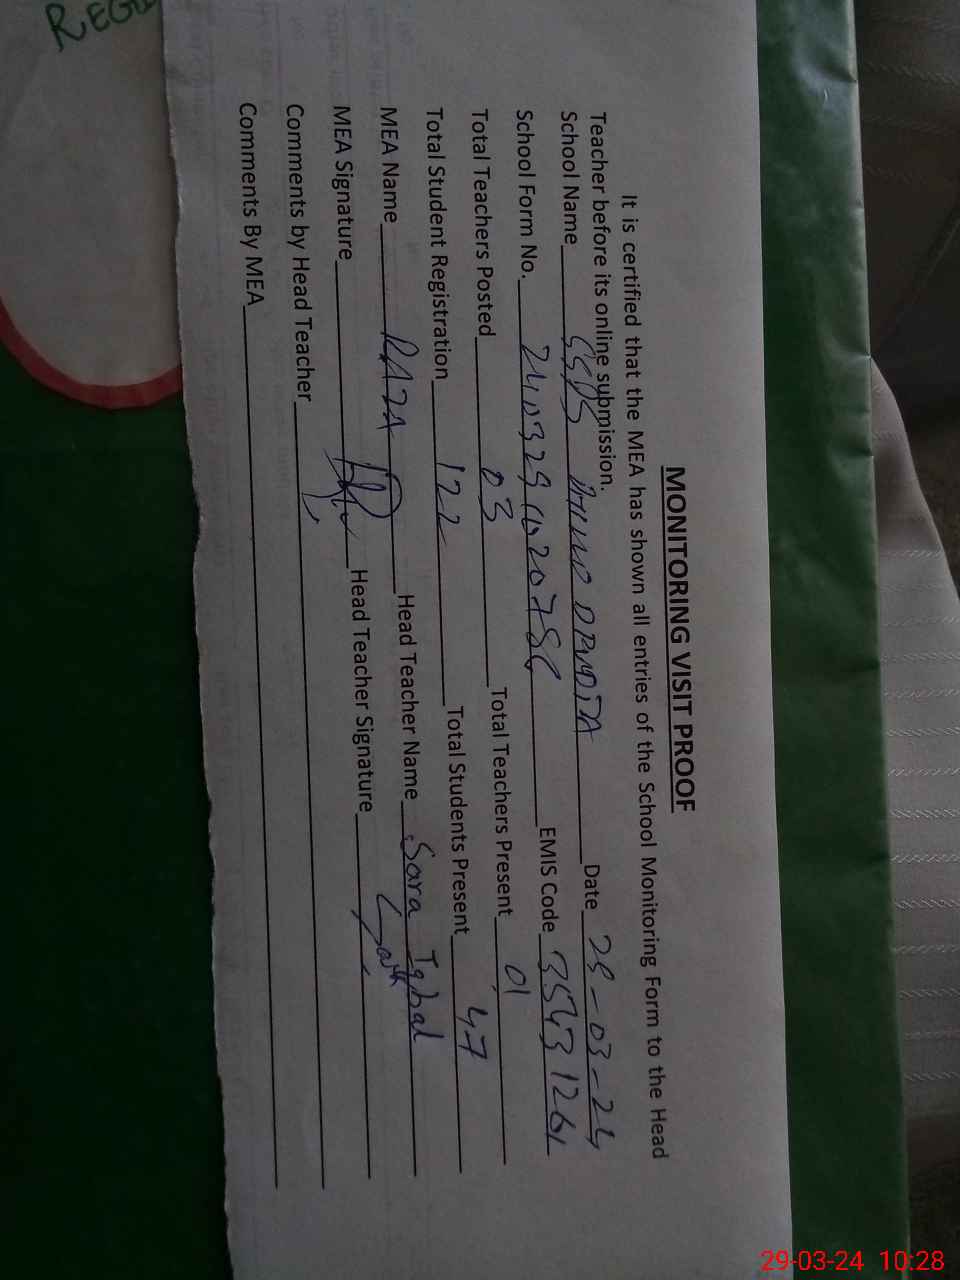 MONITORING VISIT PROOF
It is certified that the MEA has shown all entries of the School Monitoring Form to the Head
Teacher before its online submission.
School Name Date 29-03-24
School Form No. EMIS Code
Total Teachers Posted 03 Total Teachers Present 01
Total Student Registration 122 Total Students Present 47
MEA Name Head Teacher Name Sara Iqbal
MEA Signature Head Teacher Signature
Comments by Head Teacher
Comments By MEA
29-03-24 10:28